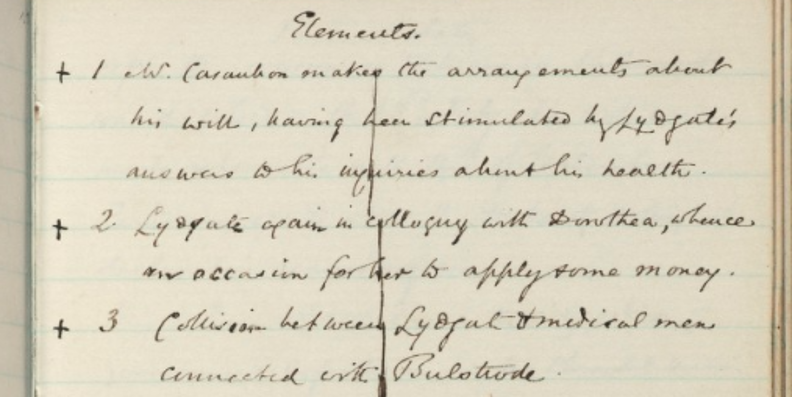 Elements.
+ 1 Mr. Casaubon makes the arrangements about
his will, having been stimulated by Lydgate's
answers to his inquiries about his health.
+ 2. Lydgate again in colloquy with Dorothea, whence
an occasion for her to apply some money.
+ 3 Collision between Lydgate & medical men
connected with Bulstrode.